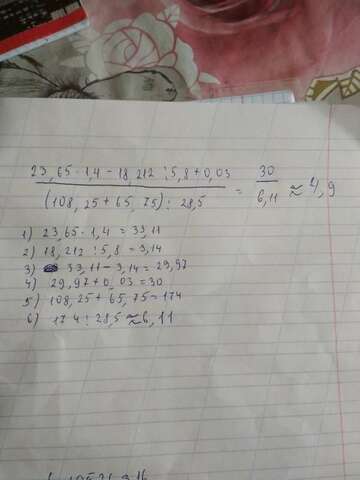 23,65 · 1,4 - 18,212 : 5,8 + 0,03
(108,25 + 65,75) : 28,5
= 30
6,11
≈ 4,9
1) 23,65 · 1,4 = 33,11
2) 18,212 : 5,8 = 3,14
3) 33,11 - 3,14 = 29,97
4) 29,97 + 0,03 = 30
5) 108,25 + 65,75 = 174
6) 174 : 28,5 ≈ 6,11